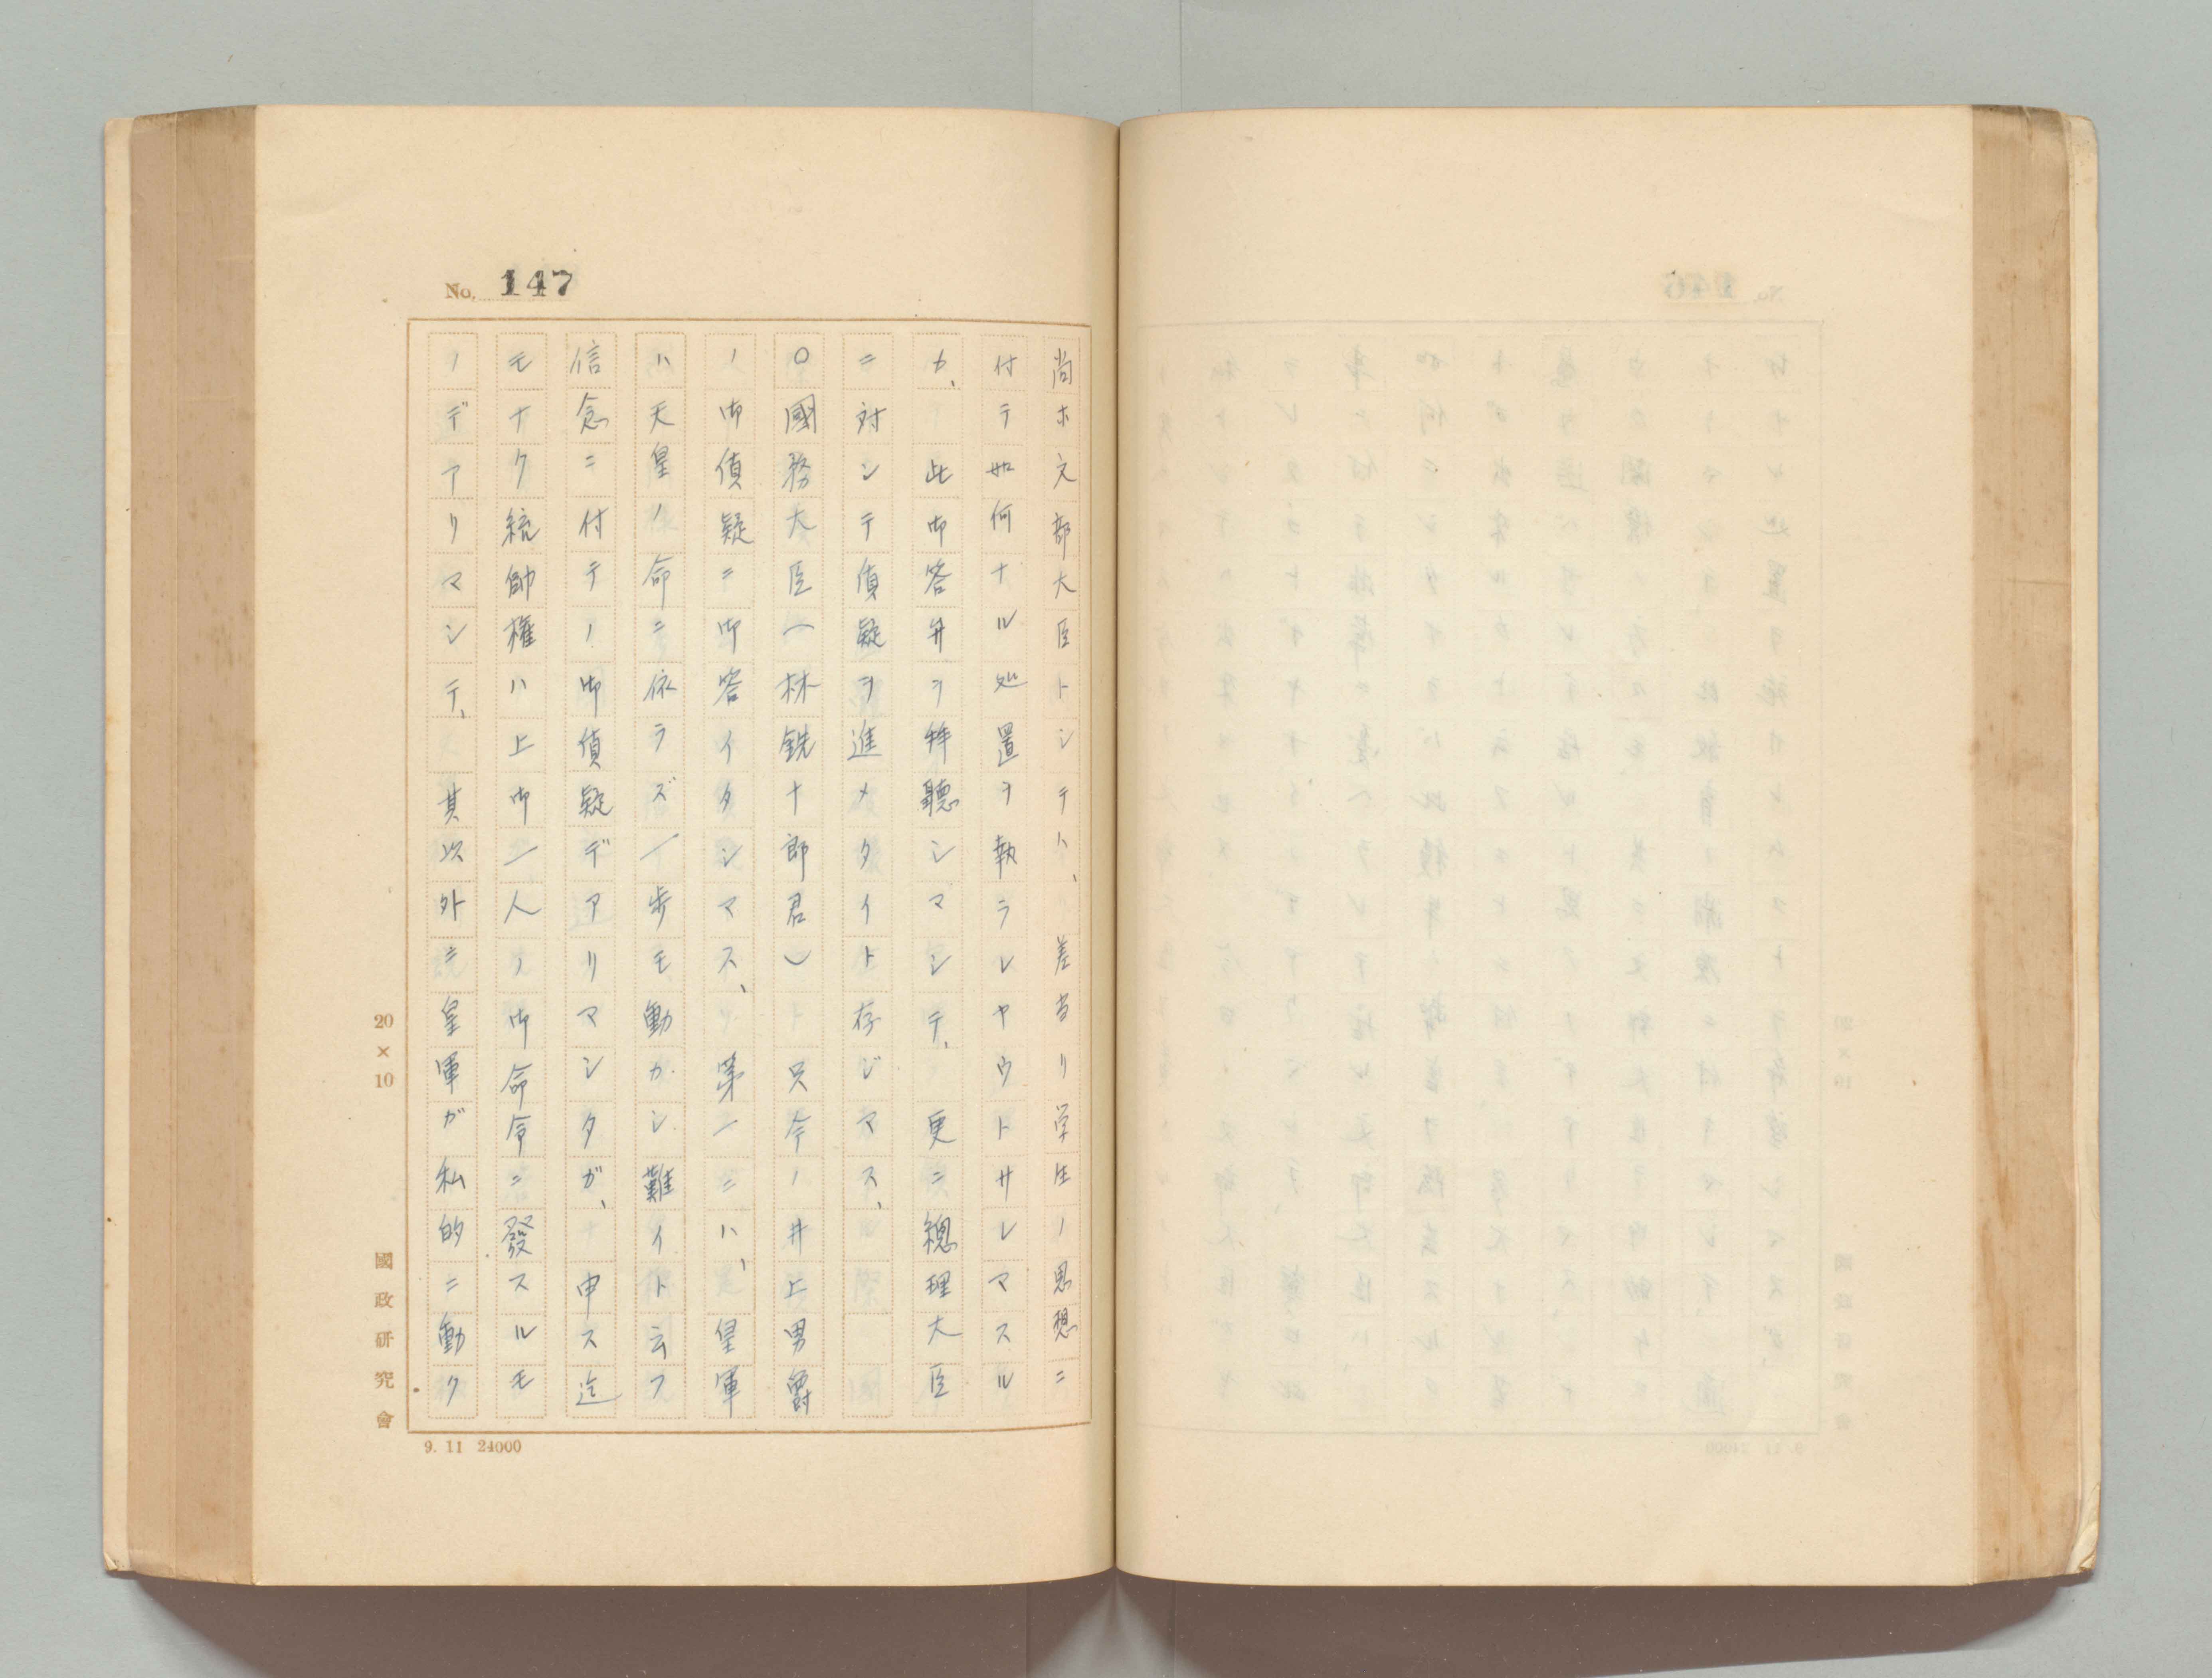 No. 147
尚ホ文部大臣トシテハ、差当リ学生ノ思想ニ
付テ如何ナル処置ヲ執ラレヤウトサレマスル
カ、此御答弁ヲ拝聴シマシテ、更ニ總理大臣
ニ対シテ質疑ヲ進メタイト存ジマス、
○國務大臣(林銑十郎君)只今ノ井上男爵
ノ御質疑ニ御答イタシマス、第一ニハ、皇軍
ハ天皇ノ命ニ依ラズ一歩モ動カシ難イト云フ
信念ニ付テノ御質疑デアリマシタガ、申ス迄
モナク統帥権ハ上御一人ノ御命令ニ發スルモ
ノデアリマシテ、其以外ニ皇軍ガ私的ニ動ク
20×10
國政研究會
9. 11 24000